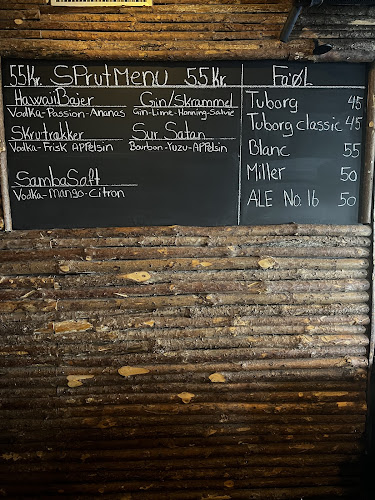 55Kr. SPrutMenu 55Kr.
HawaiiBajer
Vodka-Passion-Ananas
Gin/Skrammel
Gin-Lime-Honning-Salvie
Skrutrækker
Vodka-Frisk APPelsin
Sur Satan
Bourbon-Yuzu-APPelsin
SambaSaft
Vodka-Mango-Citron
FadØL
Tuborg 45
Tuborg classic 45
Blanc 55
Miller 50
ALE No. 16 50